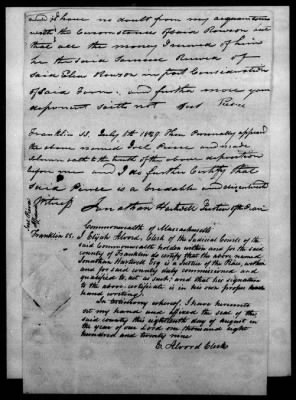 and I have no doubt from my acquaintance
with the Circumstances of said Rowson but
that all the money I received of him
he the said Samuel Received of
said Eben Rowson in part Consideration
of said Farm. and further more your
deponent saith not Joel Pierce
Franklin SS. July 8th 1829. Then Personally appeared
the above named Joel Pierce and made
solemn oath to the truth of the above deposition
before me and I do further Certify that
said Pierce is a Credible and
Witness Jonathan Hartwell Justice of the Peace
Commonwealth of Massachusetts
Franklin SS. I Elijah Alvord, Clerk of the Judicial Courts of the
said Commonwealth holden within and for the said
county of Franklin do certify that the above named
Jonathan Hartwell Esq. is a Justice of the Peace, within
and for said county duly commissioned and
qualified to act as such; and that his signature
to the above certificate is in his own proper hand
writing.
In testimony whereof, I have hereunto
set my hand and affixed the seal of the
said county this eighteenth day of august in
the year of our Lord one thousand eight
hundred and twenty nine
E. Alvord Clerk